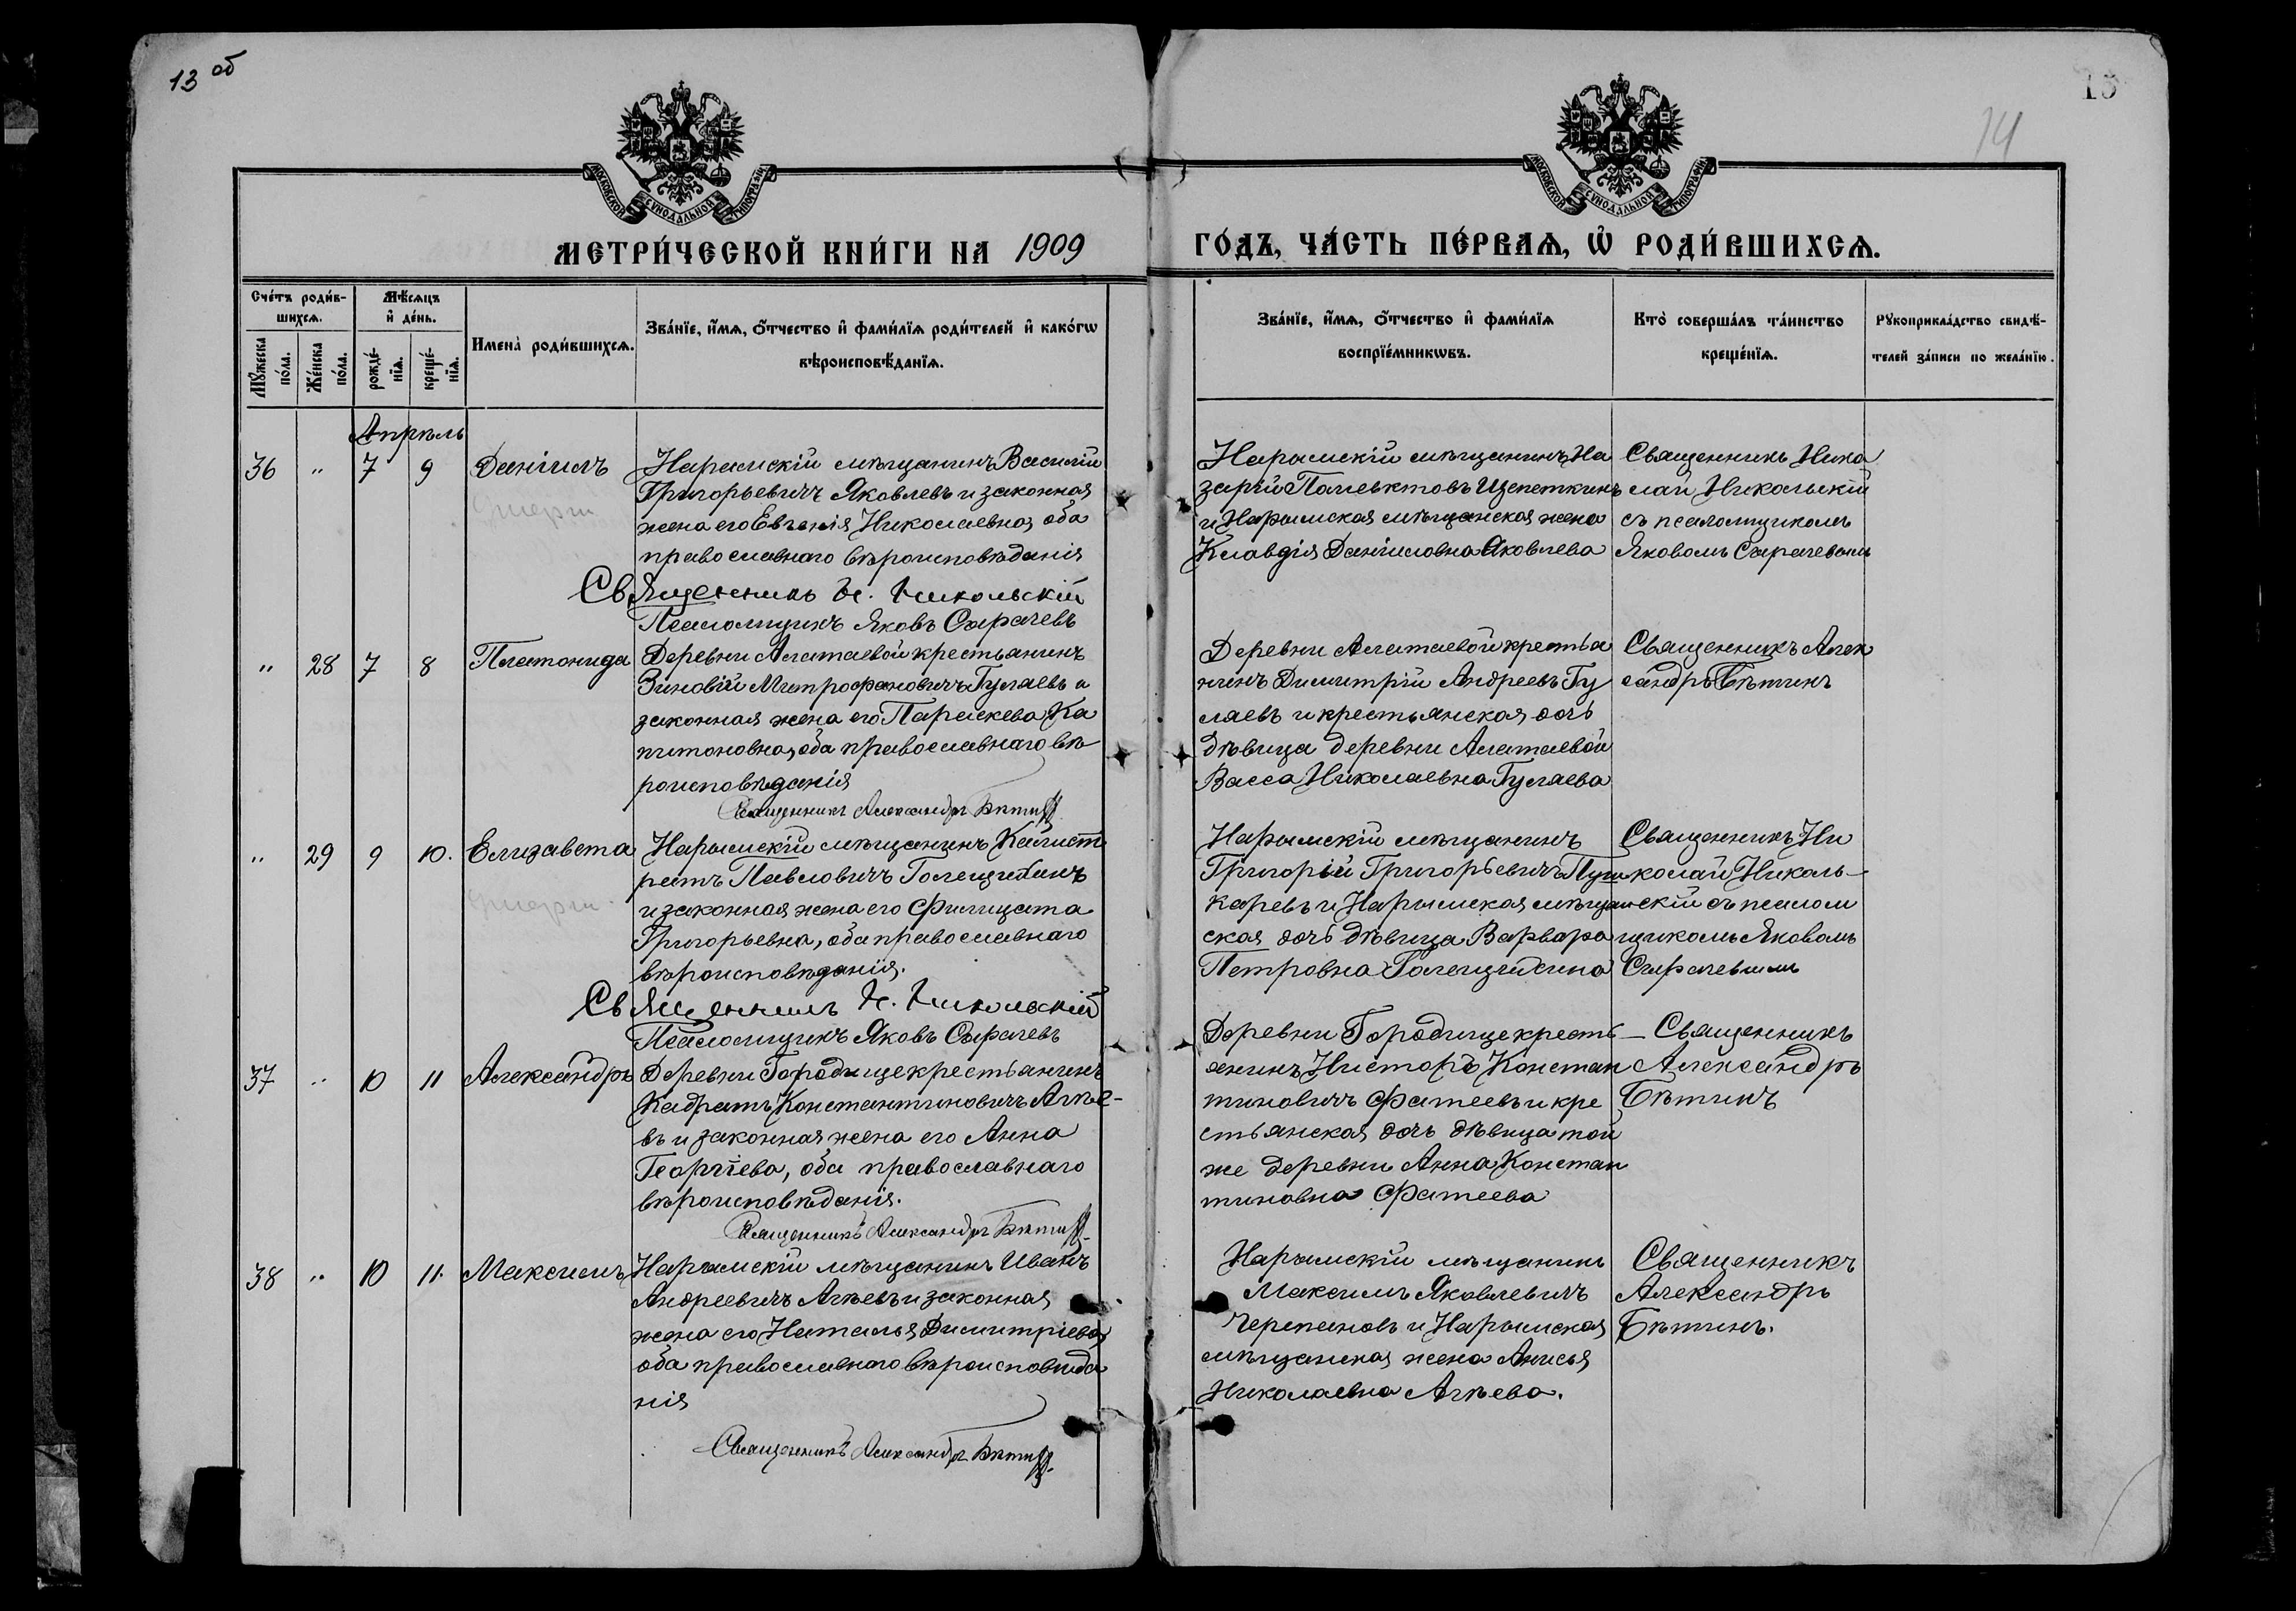 13 об
15
14
МОСКОВСКОЙ СѴНОДАЛЬНОЙ ТИПОГРАФІИ
МОСКОВСКОЙ СѴНОДАЛЬНОЙ ТИПОГРАФІИ
МЕТРИ́ЧЕСКОЙ КНИ́ГИ НА 1909
ГО́ДЪ, ЧА́СТЬ ПЕ́РВАѦ, Ѡ҆ РОДИ́ВШИХСѦ.
Сче́тъ роди́в-
шихсѧ.
Мѣ́сѧцъ
и҆ де́нь.
Мꙋ́жеска
по́ла.
Же́нска
по́ла.
рожде́-
нїѧ.
креще́-
нїѧ.
Имена̀ роди́вшихсѧ.
Зва́нїе, и҆́мѧ, ѻ҆́тчество и҆ фами́лїѧ роди́телей и҆ како́гѡ
вѣроисповѣ́данїѧ.
Зва́нїе, и҆́мѧ, ѻ҆́тчество и҆ фами́лїѧ
воспрїе́мникѡвъ.
Кто̀ соверша́лъ та́инство
креще́нїѧ.
Рꙋкоприкла́дство свидѣ́-
телей за́писи по жела́нїю.
Апрѣль
36 " 7 9 Даніилъ
умеръ
Нарымскій мѣщанинъ Василій
Григорьевичъ Яковлевъ и законная
жена его Евгенія Николаевна, оба
православнаго вѣроисповѣданія
Священникъ Н. Никольскій
Псаломщикъ Яковъ Сырачевъ
Нарымскій мѣщанинъ На
зарій Щепеткинъ
и Нарымская мѣщанская жена
Клавдія Даніиловна Яковлева
Священникъ Нико
лай Никольскій
съ псаломщикомъ
Яковомъ Сырачевымъ
" 28 7 8 Платонида
Деревни Алатаевой крестьянинъ
Зиновій Митрофановичъ Гуляевъ и
законная жена его Параскева Ка
питоновна, оба православнаго вѣ-
роисповѣданія
Священникъ Александръ Бѣтинъ
Деревни Алатаевой крестья
нинъ Димитрій Андреевъ Гу
ляевъ и крестьянская дочь
дѣвица деревни Алатаевой
Васса Николаевна Гуляева
Священникъ Алек
сандръ Бѣтинъ
" 29 9 10. Елизавета
умерла.
Нарымскій мѣщанинъ Калист
ратъ Павловичъ Голещихинъ
и законная жена его Филицата
Григорьевна, оба православнаго
вѣроисповѣданія.
Священникъ Н. Никольскій
Псаломщикъ Яковъ Сырачевъ
Нарымскій мѣщанинъ
Григорій Григорьевичъ Пуш
каревъ и Нарымская мѣщан
ская дочь дѣвица Варвара
Петровна Голещихина
Священникъ Ни
колай Николь-
скій съ псалом
щикомъ Яковомъ
Сырачевымъ
37 " 10 11 Александръ
Деревни Городище крестьянинъ
Кадратъ Константиновичъ Агѣе-
въ и законная жена его Анна
Георгіева, оба православнаго
вѣроисповѣданія.
Священникъ Александръ Бѣтинъ
Деревни Городище кресть-
янинъ Нисторъ Констан
тиновичъ Фатеевъ и кре
стьянская дочь дѣвица той
же деревни Анна Констан
тиновна Фатеева
Священникъ
Александръ
Бѣтинъ
38 " 10 11. Максимъ
Нарымскій мѣщанинъ Иванъ
Андреевичъ Агѣевъ и законная
жена его Наталья Димитріева,
оба православнаго вѣроисповѣда
нія
Священникъ Александръ Бѣтинъ
Нарымскій мѣщанинъ
Максимъ Яковлевичъ
Черепановъ и Нарымская
мѣщанская жена Анисья
Николаевна Агѣева.
Священникъ
Александръ
Бѣтинъ.